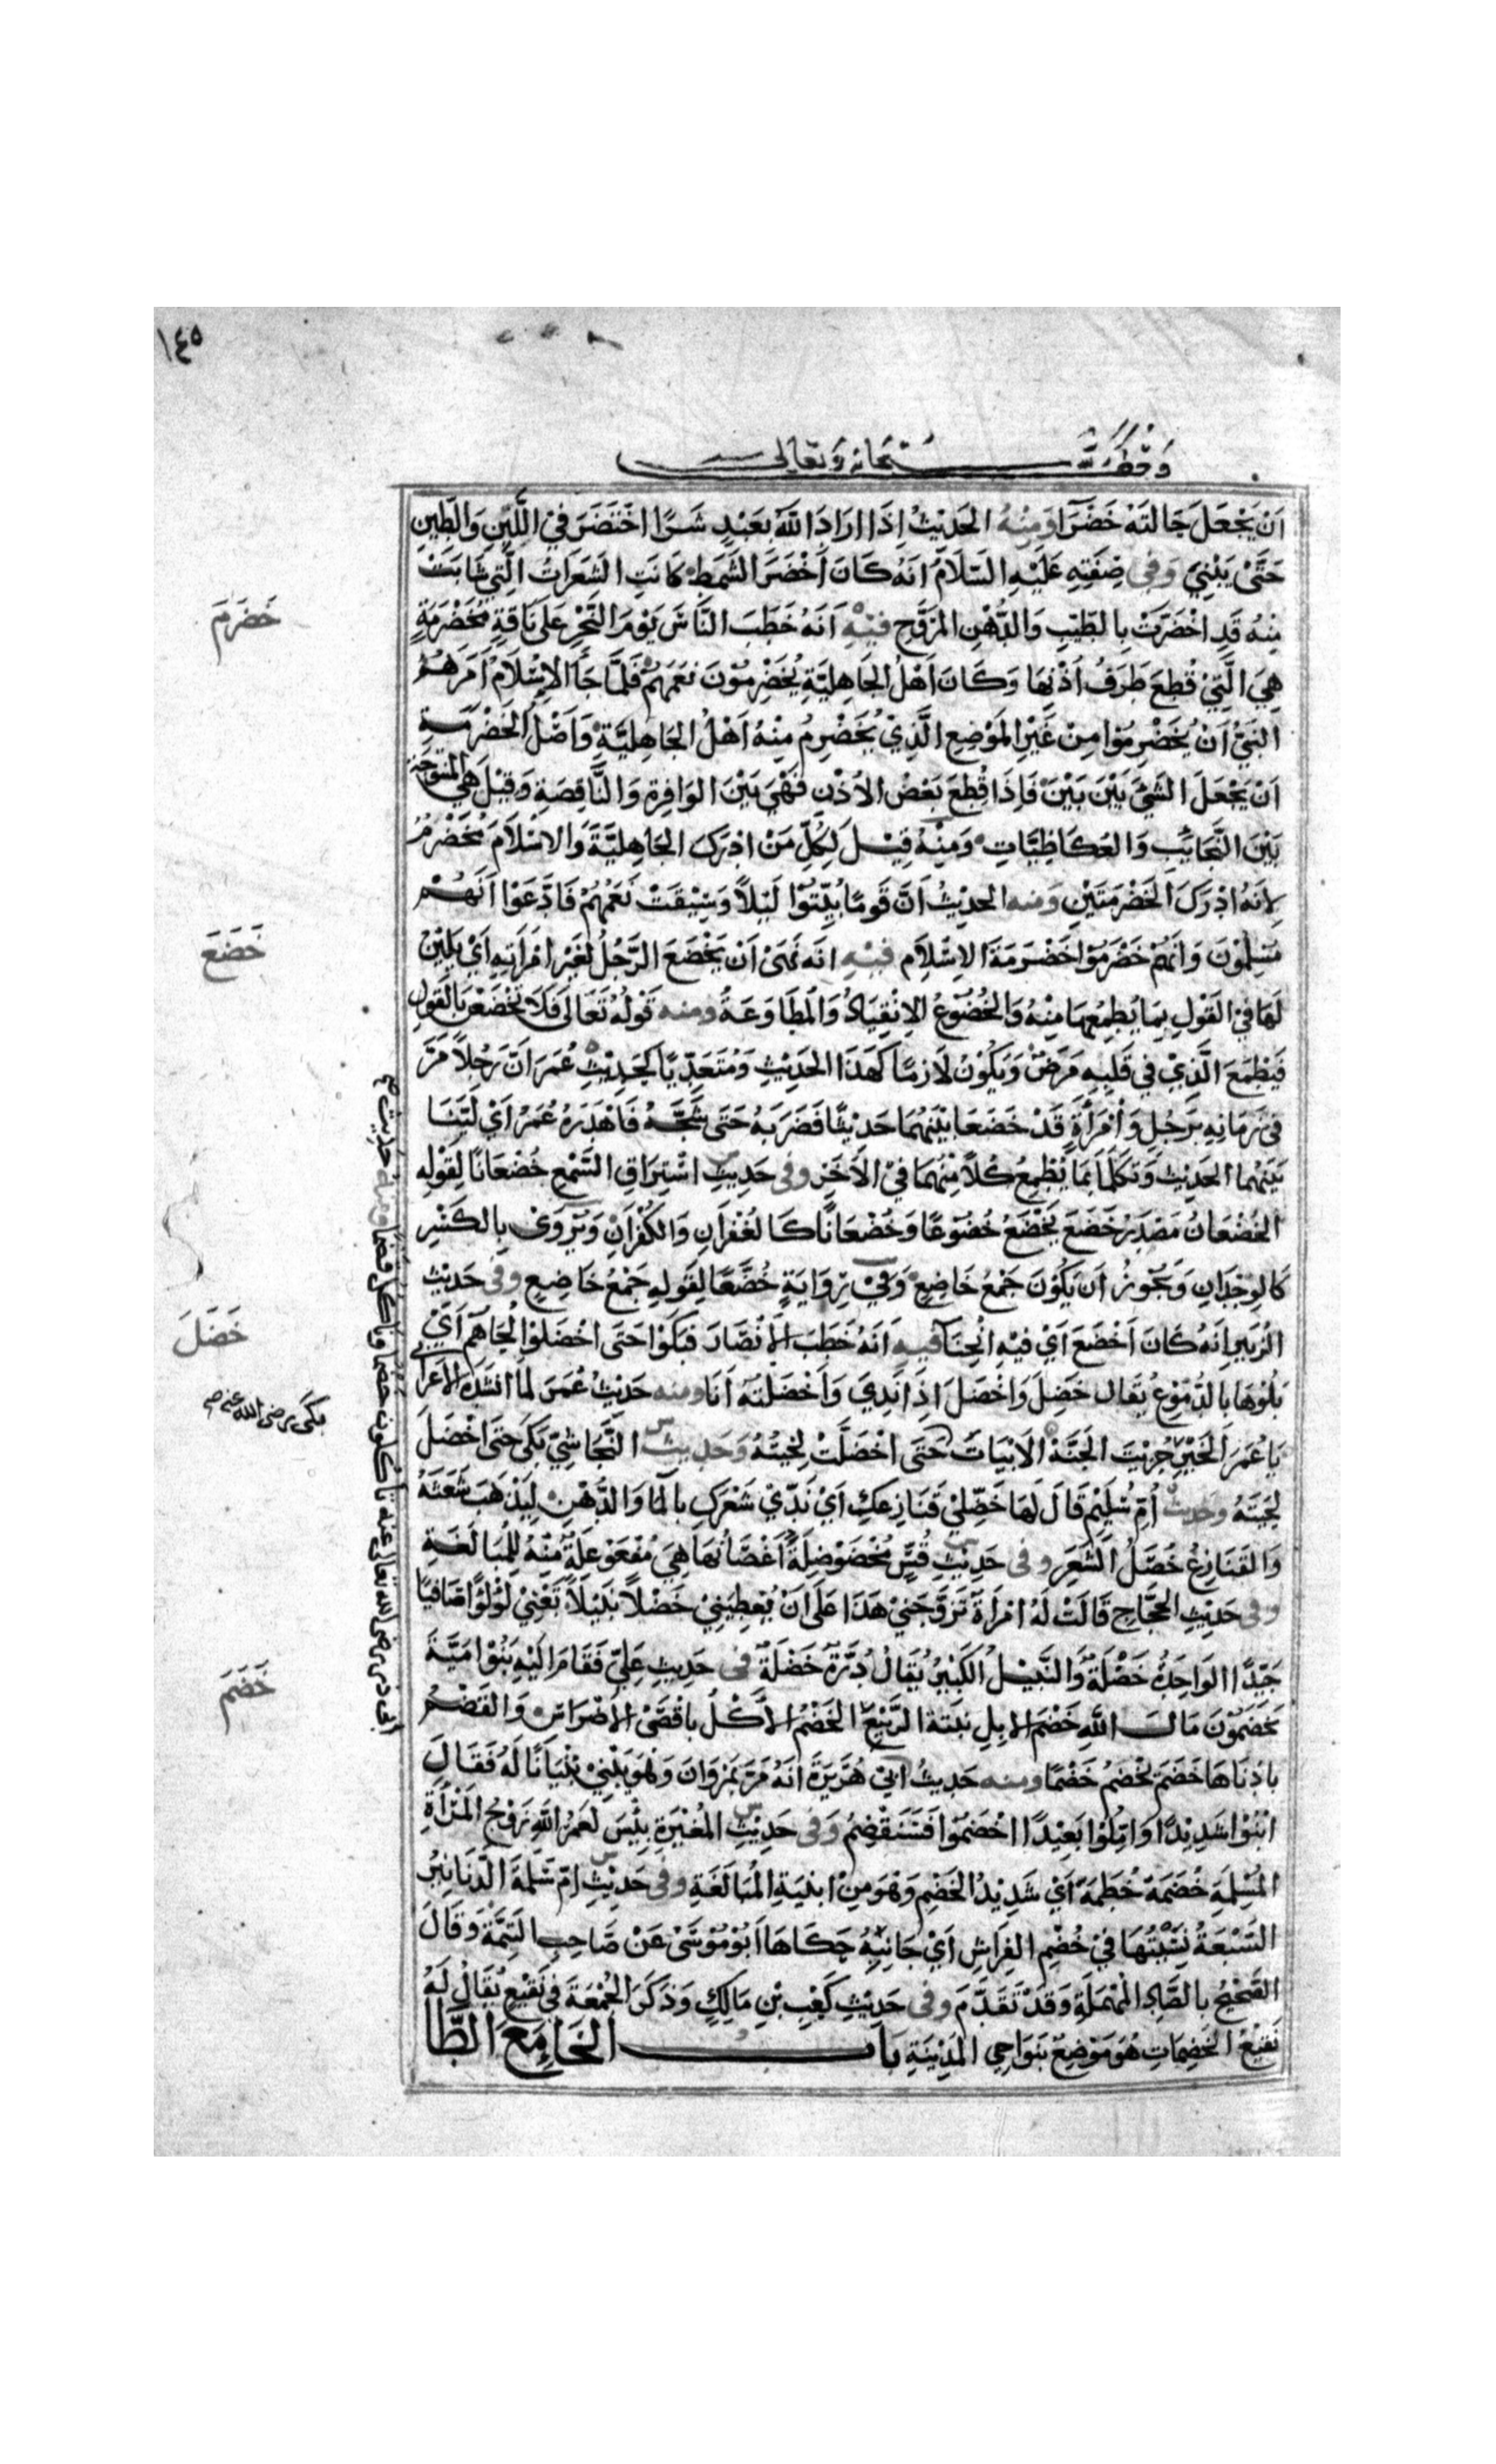 ١٤٥
وقف لله سبحانه وتعالى
اَنْ يَجْعَلَ حَالتَهُ خَضَرًا وَمِنْهُ الحَدِيْثُ اِذَا ارَادَ اللّٰهُ بعَبْدٍ شَرًا اخَضَرَ فِي اللَّبِنِ وَالطِّينِ
حَتَّىْ يَبْنِيَ وَفِى صِفَتِهِ عَلَيْهِ السّلَامُ انَهُ كَانَ اَخْضَرَ الشَمَطِ كَانَتِ الشَعَرَاتُ الَّتِي شَابَتْ
مِنْهُ قَدِ اخْضَرَتْ بِالطّيْبِ وَالدُّهْنِ المُرَوَّحِ فيْهِ اَنَهُ خَطَبَ النَّاسَ يَوْمَ النَّحْرِ عَلَى نَاقَةٍ مُخَضْرَمَةٍ
هِيَ الَّتِيْ قُطِعَ طَرَفُ اُذْنِهَا وَكَانَ اَهْلُ الجَاهِليَّةِ يُخَضْرِمُوْنَ نعَمَهُمْ فَلَمَّا جَآ الاِسْلَامُ اَمَرَهُمُ
النَبِيُّ اَنْ يُخَضْرِمُوْا مِنْ غَيْرِ المَوْضِعِ الَّذِيْ يُخَضْرِمُ مِنْهُ اَهْلُ الجَاهِلِيَّةِ وَاَصْلُ الخَضْرَمَةِ
اَنْ يَجْعَلَ الشَيْءَ بَيْنَ بَيْنَ فَاِذَا قُطِعَ بَعْضُ الاُذْنِ فَهْيَ بَيْنَ الوَافِرَةِ وَالنَّاقِصَةِ وَقِيْلَ هِيَ المنتُوجَةُ
بَيْنَ النَّجَائِبِ وَالعُكَاظِيَّاتِ وَمِنْهُ قِيْلَ لِكُلِّ مَنْ ادْرَكَ الجَاهِلِيَّةَ وَالاسْلَامَ مُخَضْرَمٌ
لِانَهُ ادْرَكَ الخَضْرَمَتَيْنِ وَمنه الحَدِيْثُ اَنَّ قَومًا بُيِّتُوْا لَيْلاً وَسِيْقَتْ نَعَمُهُمْ فَادَّعَوْا اَنَهُمْ
مُسْلِمُوْنَ وَانَهُمْ خَضْرَمُوْا خَضْرَمَةَ الاِسْلَامِ فيْهِ انَه نَهَىْ اَنْ يَخْضَعَ الرَّجُلُ لغَيْرِ امْرَاَتِهِ اَيْ يَلِيْنَ
لَهَا فِي القَوْلِ بِمَا يُطمِعُهِا مِنْهُ وَالخُضُوْعُ الاِنْقِيَادُ وَالمُطَاوَعَةُ ومنه قَوْلُهُ تَعَالَى فَلَا تَخْضَعْنَ بِالقَولِ
فَيَطْمَعَ الَّذِيْ فِي قَلْبِهِ مَرَضٌ وَيَكُوْنُ لَازِمًا كَهَذَا الحَدِيْثِ وَمُتَعَدِّيًا كَحَدِيْثِ عُمَرَ اَنَّ رَجُلاً مَرَّ
فِي زَمَانِهِ بَرَجُلٍ وَامْرَاَةٍ قَدْ خَضَعَا بَيْنَهُمَا حَدِيْثًا فَضَرَبَهُ حَتَى شَجَّهُ فَاَهْدَرَهُ عُمَرُ اَيْ لَيَّنَا
بَيْنَهُمَا الحَدِيْثَ وَتكَلَّمَا بِمَا يُطْمِعُ كُلاً مِنْهُمَا فِي الآخَرِ وفى حَدِيْثِ اسْتِرَاقِ السَّمْعِ خُضْعَانًا لِقَوْلِهِ
الخُضْعَانُ مَصْدَرُ خَضَعَ يَخْضَعُ خُضُوْعًا وَخُضْعَانًا كَالغُفْرَانِ وَالكُفْرَانِ وَيُرْوَىْ بِالكَسْرِ
كَالوِجْدَانِ وَيَجُوْزُ اَنْ يَكُوْنَ جَمْعُ خَاضِعٍ وَفِيْ رِوَايَةٍ خُضَّعًا لِقَولِهِ جَمْعُ خَاضِعٍ وفى حَدِيْثِ
الزُبَيرِ انَهُ كَانَ اَخْضَعَ اَيْ فِيْهِ انْحِنَآ فيهِ اَنَهُ خَطَبَ الاَنْصَارَ فبَكَوْا حَتَى اخْضَلوْا لِحَاهُمْ اَيْ
بَلُّوْهَا بِالدُّمُوْعِ يُقَال خَضِلَ وَاخْضَلَ اِذَا نَدِيَ وَاَخْضَلتُهُ اَنَا ومنه حَدِيْثُ عُمَرَ لَمَّا انْشَدَهُ الاَعْرَابِي
يَا عُمَرَ الخَيْرِ جُزِيْتَ الجَنَّهْ الاَبْيَاتَ حَتَى اخْضَلَّتْ لِحْيَتُهُ وَحَدِيْثُ النَّجَاشِيّ بَكَى حَتَى اخْضَلَ
لِحْيَتَهُ وَحَدِيْثُ اُمِّ سُلَيْمٍ قَالَ لَهَا خَضِّلِيْ قَنَازِعَكِ اَيْ نَدِّيْ شَعْرَكِ بِالمآ وَالدُّهْنِ لِيَذْهَبَ شَعَثُهُ
وَالقَنَازِعُ خُصَلُ الشَعَرِ وفى حَدِيْثِ قُسٍّ مُخْضَوْضِلَةٌ اَغْصَانُهَا هِيَ مُفْعَوْعِلَةٌ مِنْهُ لِلمُبَالَغَةِ
وفى حَدِيْثِ الحَجَّاجِ قَالَتْ لَهُ امْرَاَةٌ تَزَوَّجَنِيْ هَذَا عَلَى اَنْ يُعْطِيَنِيْ خَضْلاً نَبِيْلاً تَعْنِيْ لُؤْلُؤًا صَافِيًا
جَيِّدًا الوَاحِدَةُ خَضْلَةٌ وَالنَّبِيْلُ الكَبِيْرُ يُقَالُ دُرَّةٌ خَضْلَةٌ فى حَدِيْثِ عَلِيّ فَقَامَ اِلَيْهِ بَنُوْ اُمَيَّةَ
يَخْضَمُوْنَ مَالَ اللّٰهِ خَضْمَ الاِبِلِ نبْتَةَ الرَّبِيْعِ الخَضْمُ الاَكْلُ بِاقْصَىْ الاَضْرَاسِ وَالقَضْمُ
بِادْنَاهَا خَضِمَ يَخْضَمُ خَضْمًا ومنه حَدِيْثُ ابِيْ هُرَيْرَةَ انَهُ مَرَّ بمَرْوَانَ وَهُوَ يَبْنِيْ بُنْيَانًا لَهُ فَقَالَ
ابْنُوْا شَدِيْدًا وَامِّلُوْا بَعِيْدًا اخْضَمُوْا فَسَنَقْضِمُ وَفى حَدِيْثِ المُغِيْرَةِ بِئْسَ لَعَمْرُ اللّٰهِ زَوْجُ المَرْاَةِ
المُسْلِمَةِ خُضَمَةٌ حُطَمَةٌ اَيْ شَدِيْدُ الخَضْمِ وَهْوَ مِنْ ابْنِيَةِ المُبَالَغَةِ وفى حَدِيْثِ اُمّ سَلَمَةَ الدَّنَانِيْرُ
السَّبْعَةُ نَسِيْتُهَا فِيْ خُضْمِ الفِرَاشِ اَيْ جَانِبِهِ حَكَاهَا اَبُوْ مُوْسَىْ عَنْ صَاحِبِ التَتِمَّةِ وَقَالَ
الصَّحِيْحُ بِالصَّادِ المُهْمَلَةِ وَقَدْ تَقَدَّمَ وفى حَدِيْثِ كَعْبِ بْنِ مَالِكٍ وَذَكَرَ الجُمْعَةَ فِي نَقِيْعٍ يُقَالُ لَهُ
نَقِيْعُ الخَضِمَاتِ هُوَ مَوْضِعٌ بنَوَاحِي المَدِيْنَةِ بَابُ الخَاءِ مَعَ الطَّا
خَضرَمَ
خَضَعَ
خَضَلَ
بَكَى رضى الله عنه صح
خَضَمَ
ابى ذر رضى الله تعالى عنه تاكلون خضما وناكل قضما ومنه حديث صح